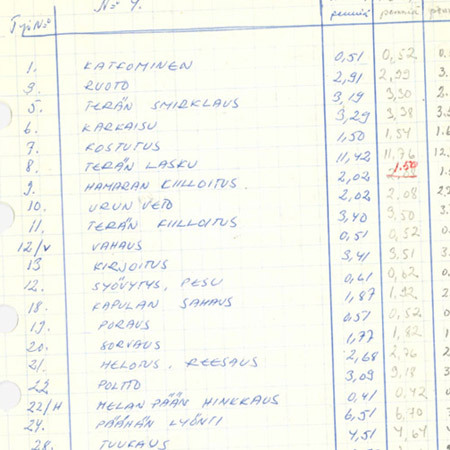 No 4.
Työ No penniä penniä
1. KATKOMINEN 0,51 0,52
3. RUOTO 2,91 2,99
5. TERÄN SMIRKLAUS 3,19 3,30
6. KARKAISU 3,29 3,38
7. KOSTUTUS 1,50 1,54
8. TERÄN LASKU 11,42 11,76
9. HAMARAN KIILLOITUS 2,02 1.50
10. URUN VETO 2,02 2,08
11. TERÄN KIILLOITUS 3,40 3,50
12/V VAHAUS 0,51 0,52
13 KIRJOITUS 3,41 3,51
12. SYÖVYTYS, PESU 0,61 0,62
18. KAPULAN SAHAUS 1,87 1,92
19. PORAUS 0,51 0,52
20. SORVAUS 1,77 1,82
21. HELOITUS, REESAUS 2,68 2,76
22 POLTTO 3,09 3,18
22/H MELAN PÄÄN HINKKAUS 0,41 0,42
24. PÄÄHÄN LYÖNTI 6,51 6,70
28. TUUKAUS 4,51 4,64